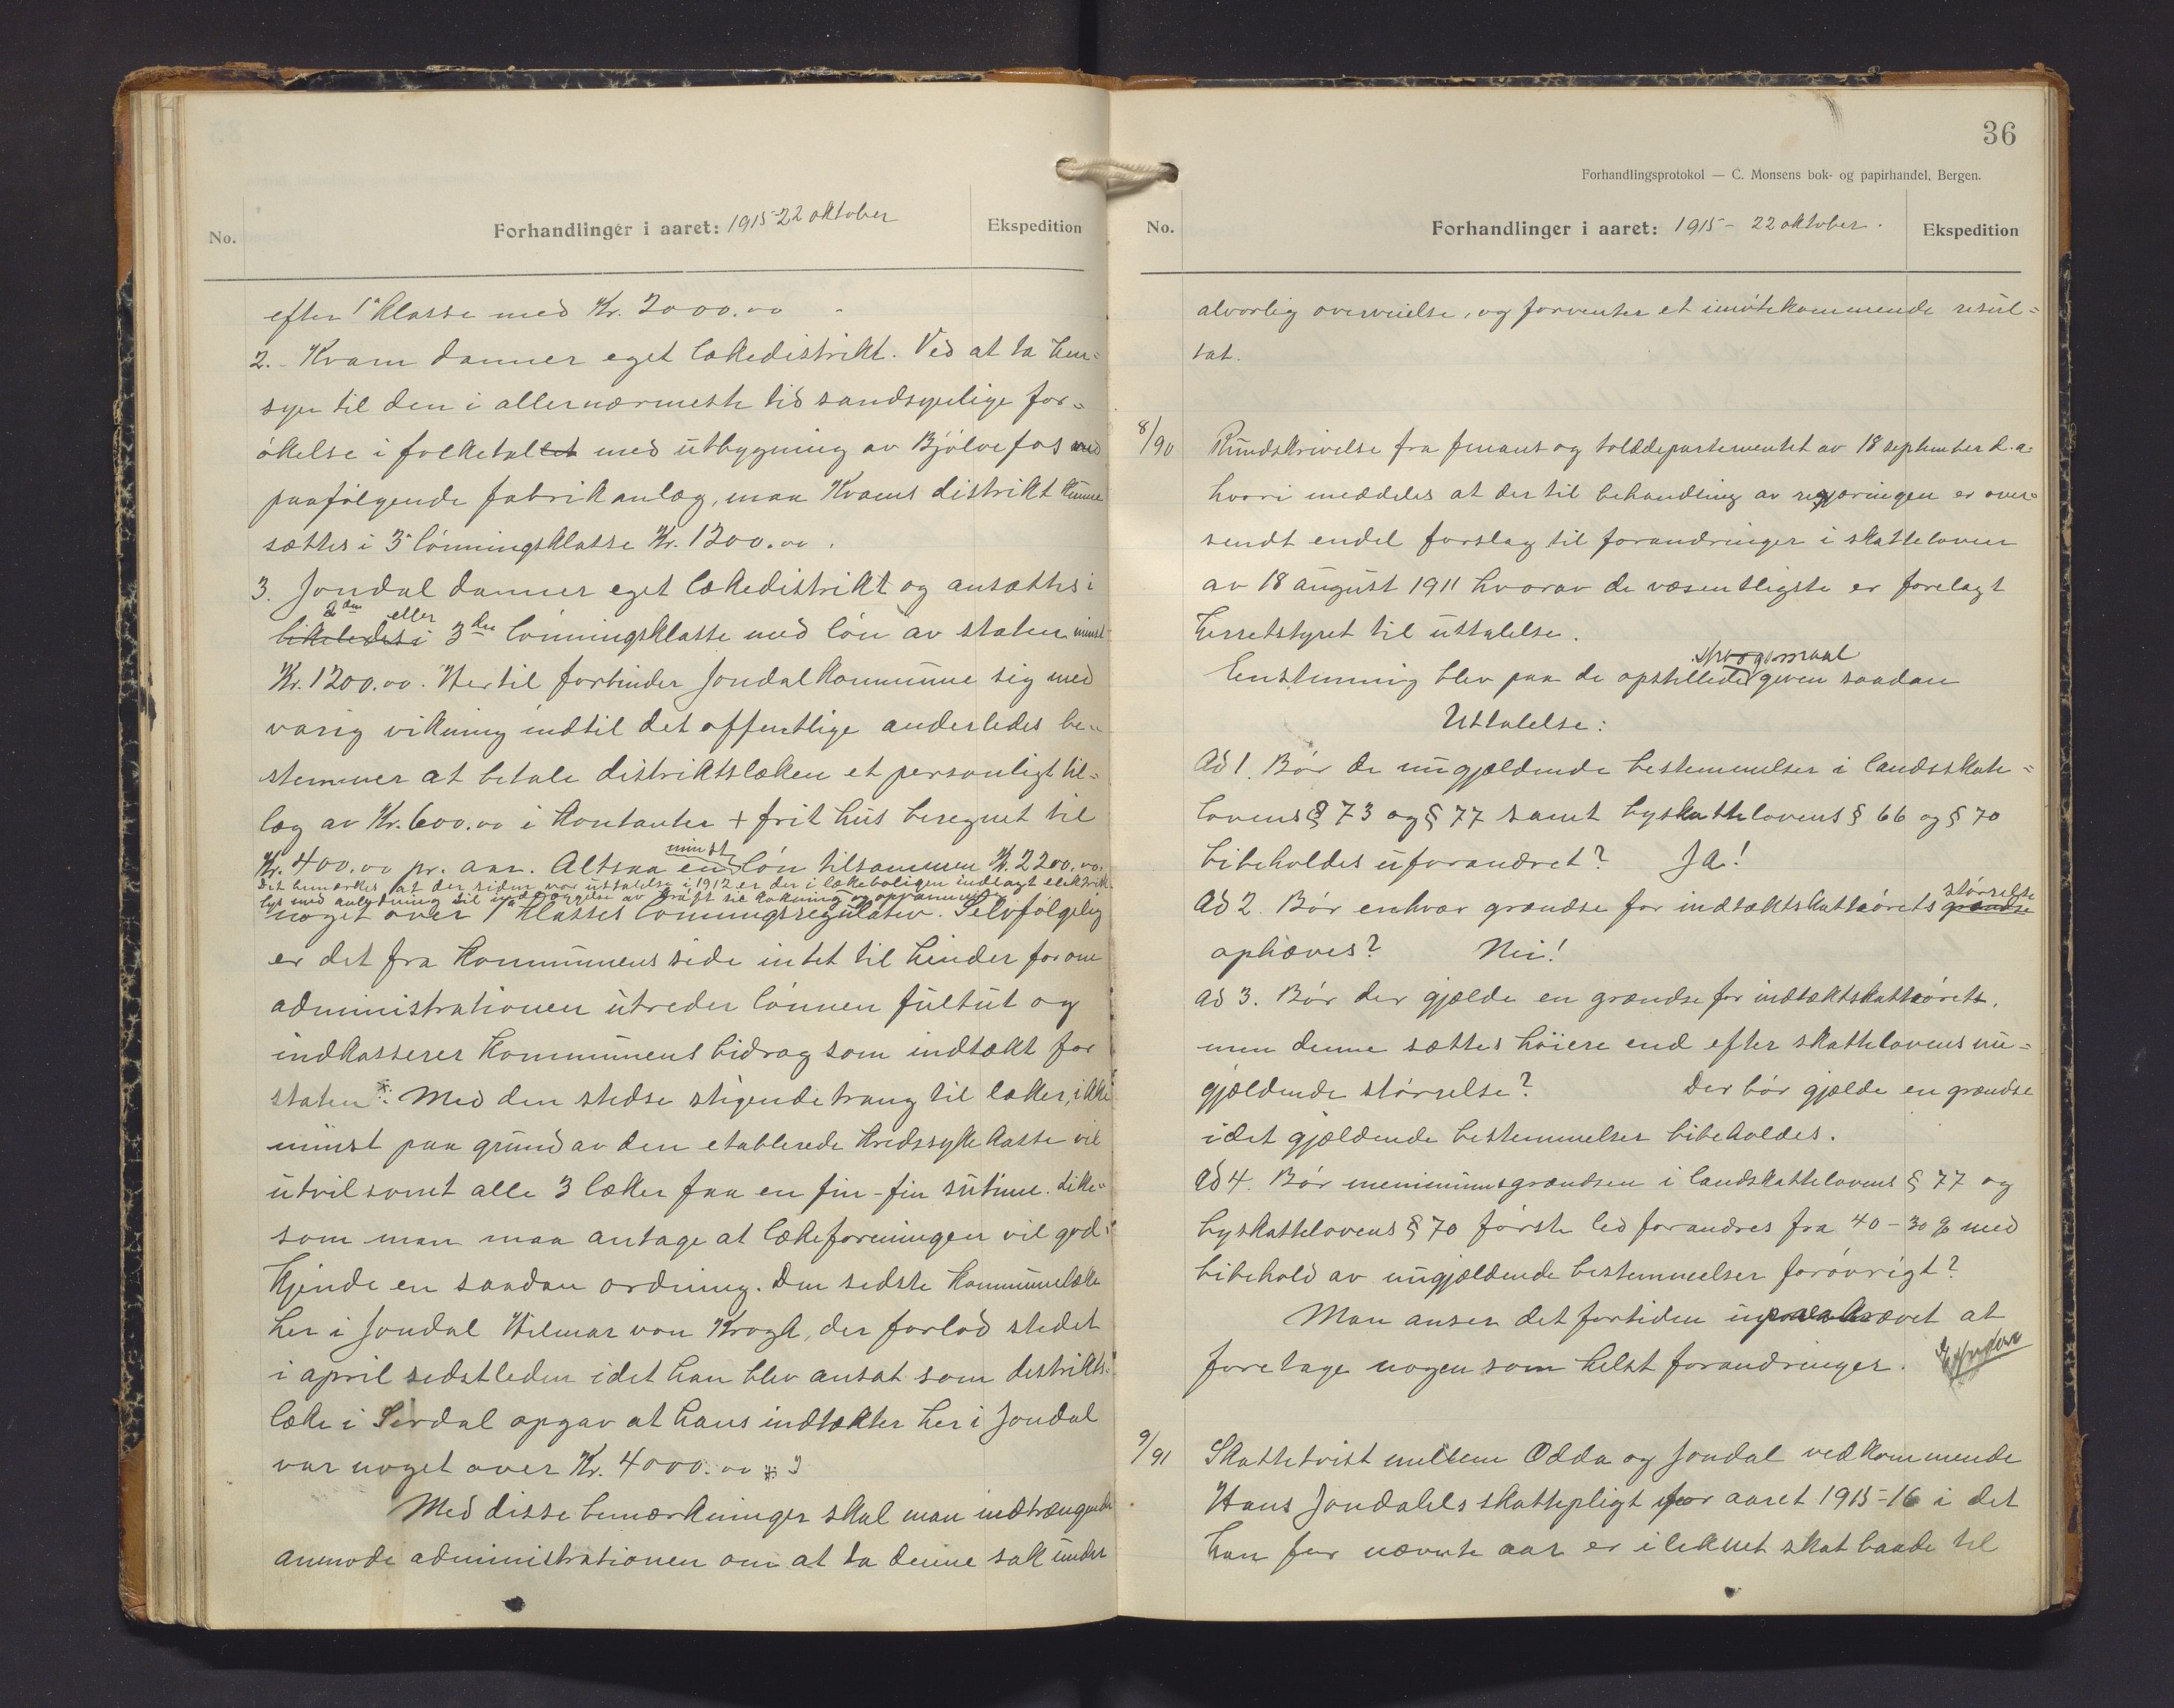 No.
Forhandlinger i aaret: 1915 22 oktober
Ekspedition
efter 1ª klasse med Kr. 2000.00
2. Kvam danner eget lækedistrikt. Ved at ta hen-
syn til den i allernærmeste tid sandsynlige for-
økelse i folketallet med utbygning av Bjølvefos med
paafølgende fabrikanlæg, maa Kvams distrikt kunne
sættes i 3ª lønningsklasse Kr. 1200.00.
3. Jondal danner eget lækedistrikt og ansættes i
2den eller
likeledes i 3die lønningsklasse med løn av staten minst
Kr. 1200.00. Hertil forbinder Jondal kommune sig med
varig virkning indtil det offentlige anderledes be-
stemmer at betale distriktslæken et personligt til-
læg av Kr. 600.00 i kontanter + frit hus beregnet til
mindst
Kr. 400.00 pr. aar. Altsaa en løn tilsammen Kr. 2200.00.
Det bemærkes, at der siden vor uttalelse i 1912 er der i lækeboligen indlagt elektrisk
lys med anledning til indlæggelse av kraft til kokning og opvarmning
noget over 1ª klasses lønningsregulativ. Selvfølgelig
er det fra kommunens side intet til hinder for om
administrationen utreder lønnen fultut og
indkasserer kommunens bidrag som indtækt for
staten. Med den stedse stigende trang til læker, ikke
minst paa grund av den etablerede kredssykekasse vil
utvilsomt alle 3 læker faa en fin-fin rutine. Like-
som man maa antage at lækeforeningen vil god-
kjende en saadan ordning. Den sidste kommunelæke
her i Jondal Hilmar von Krogh, der forlod stedet
i april sidstleden idet han blev ansat som distrikts-
læke i Sirdal opgav at hans indtækter her i Jondal
var noget over Kr. 4000.00
Med disse bemærkninger skal man indtrængende
anmode administrationen om at ta denne sak under
36
Forhandlingsprotokol — C. Monsens bok- og papirhandel, Bergen.
No.
Forhandlinger i aaret: 1915 - 22 oktober.
Ekspedition
alvorlig overveielse, og forventer et imøtekommende resul-
tat.
8/90 Rundskrivelse fra finans og tolddepartementet av 18 september d.a.
hvori meddeles at der til behandling av regjæringen er over-
sendt endel forslag til forandringer i skatteloven
av 18 august 1911 hvorav de væsentligste er forelagt
herretstyret til uttalelse.
spørgsmaal
Enstemmig blev paa de opstillede given saadan
Uttalelse:
Ad 1. Bør de nugjældende bestemmelser i landsskatte-
lovens § 73 og § 77 samt byskattelovens § 66 og § 70
bibeholdes uforandret? Ja!
størrelse
Ad 2. Bør enhver grændse for indtæktskatteørets grændse
ophæves? Nei!
Ad 3. Bør der gjælde en grændse for indtæktskatteøret,
men denne sættes høiere end efter skattelovens nu-
gjældende størrelse? Der bør gjælde en grændse
idet gjældende bestemmelser bibeholdes.
Ad 4. Bør menimumsgrændsen i landskattelovens § 77 og
byskattelovens § 70 første led forandres fra 40 - 30 % med
bibehold av nugjældende bestemmelser forøvrigt?
Man anser det fortiden upaakrævet at
foretage nogen som helst forandringer.
9/91 Skattetvist mellem Odda og Jondal vedkommende
Hans Jondahls skattepligt for aaret 1915-16 i det
han for nævnte aar er ileknet skat baade til